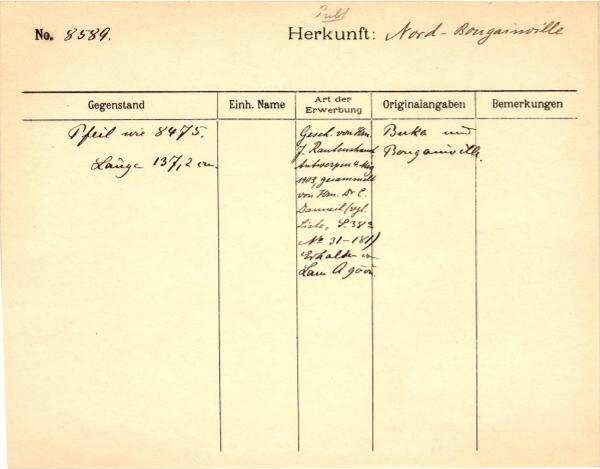 No. 8589.
Herkunft: Nord-Bougainville
Gegenstand
Einh. Name
Art der Erwerbung
Originalangaben
Bemerkungen
Pfeil wie 8475.
Länge 137,2 cm.
Gesch. von Hrn.
J. Rautenstrauch
Antwerpen
1903, gesammelt
von Hrn. Dr C.
Danneil (vgl.
Liste, S. 382
No 31-181)
Erhalten
Buka und
Bougainville.